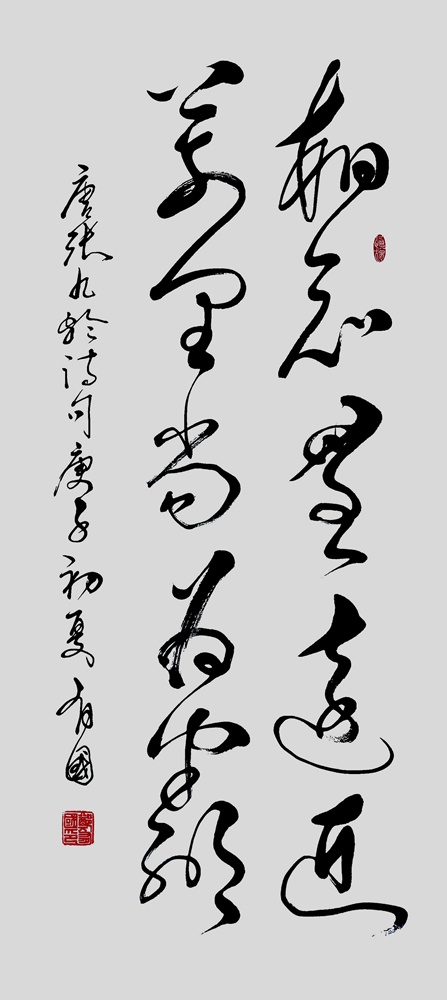 相知無遠近
萬里尚為鄰
唐張九齡詩句庚子初夏有國